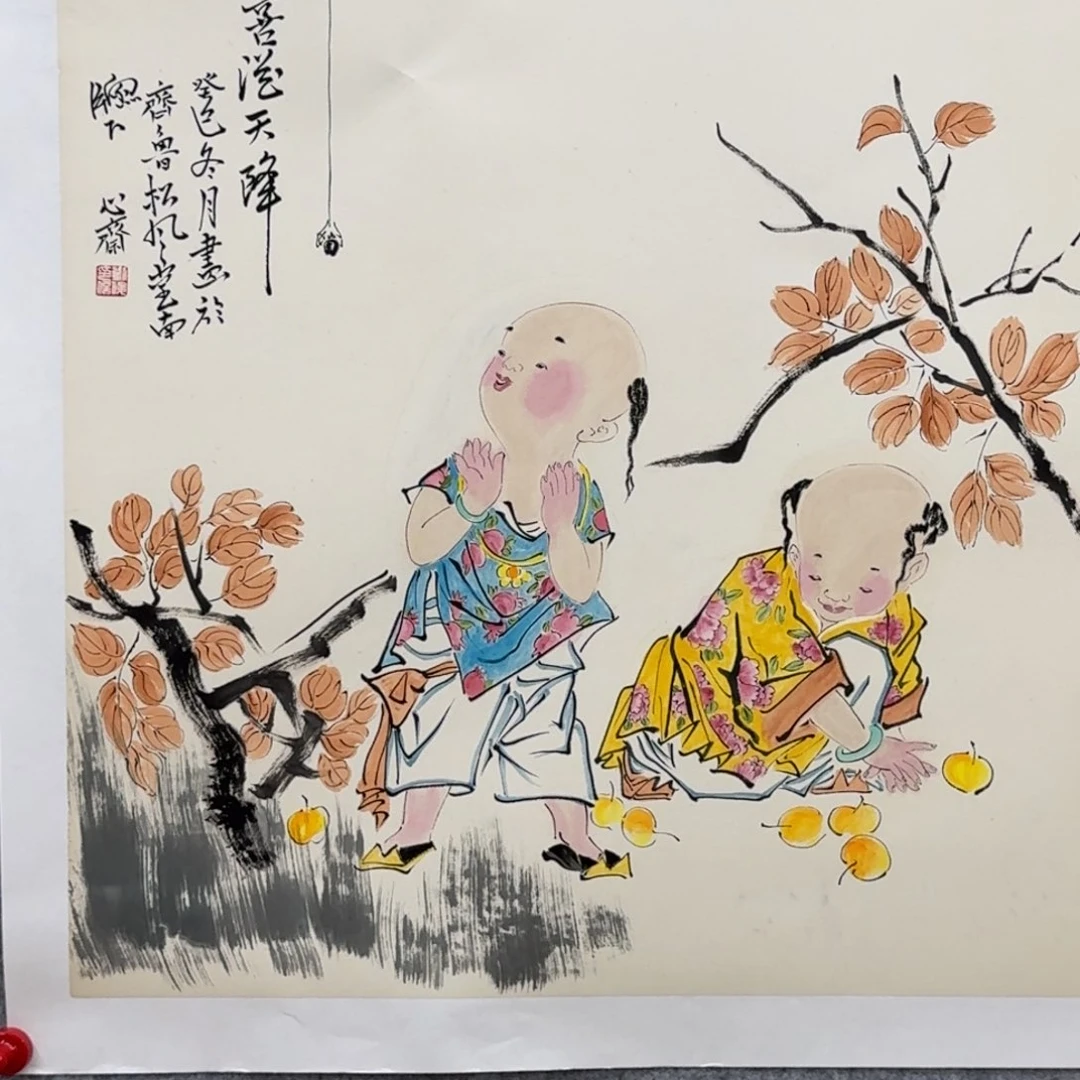 喜從天降
癸巳冬月畫於
齊魯松風堂南
牕下
心齋